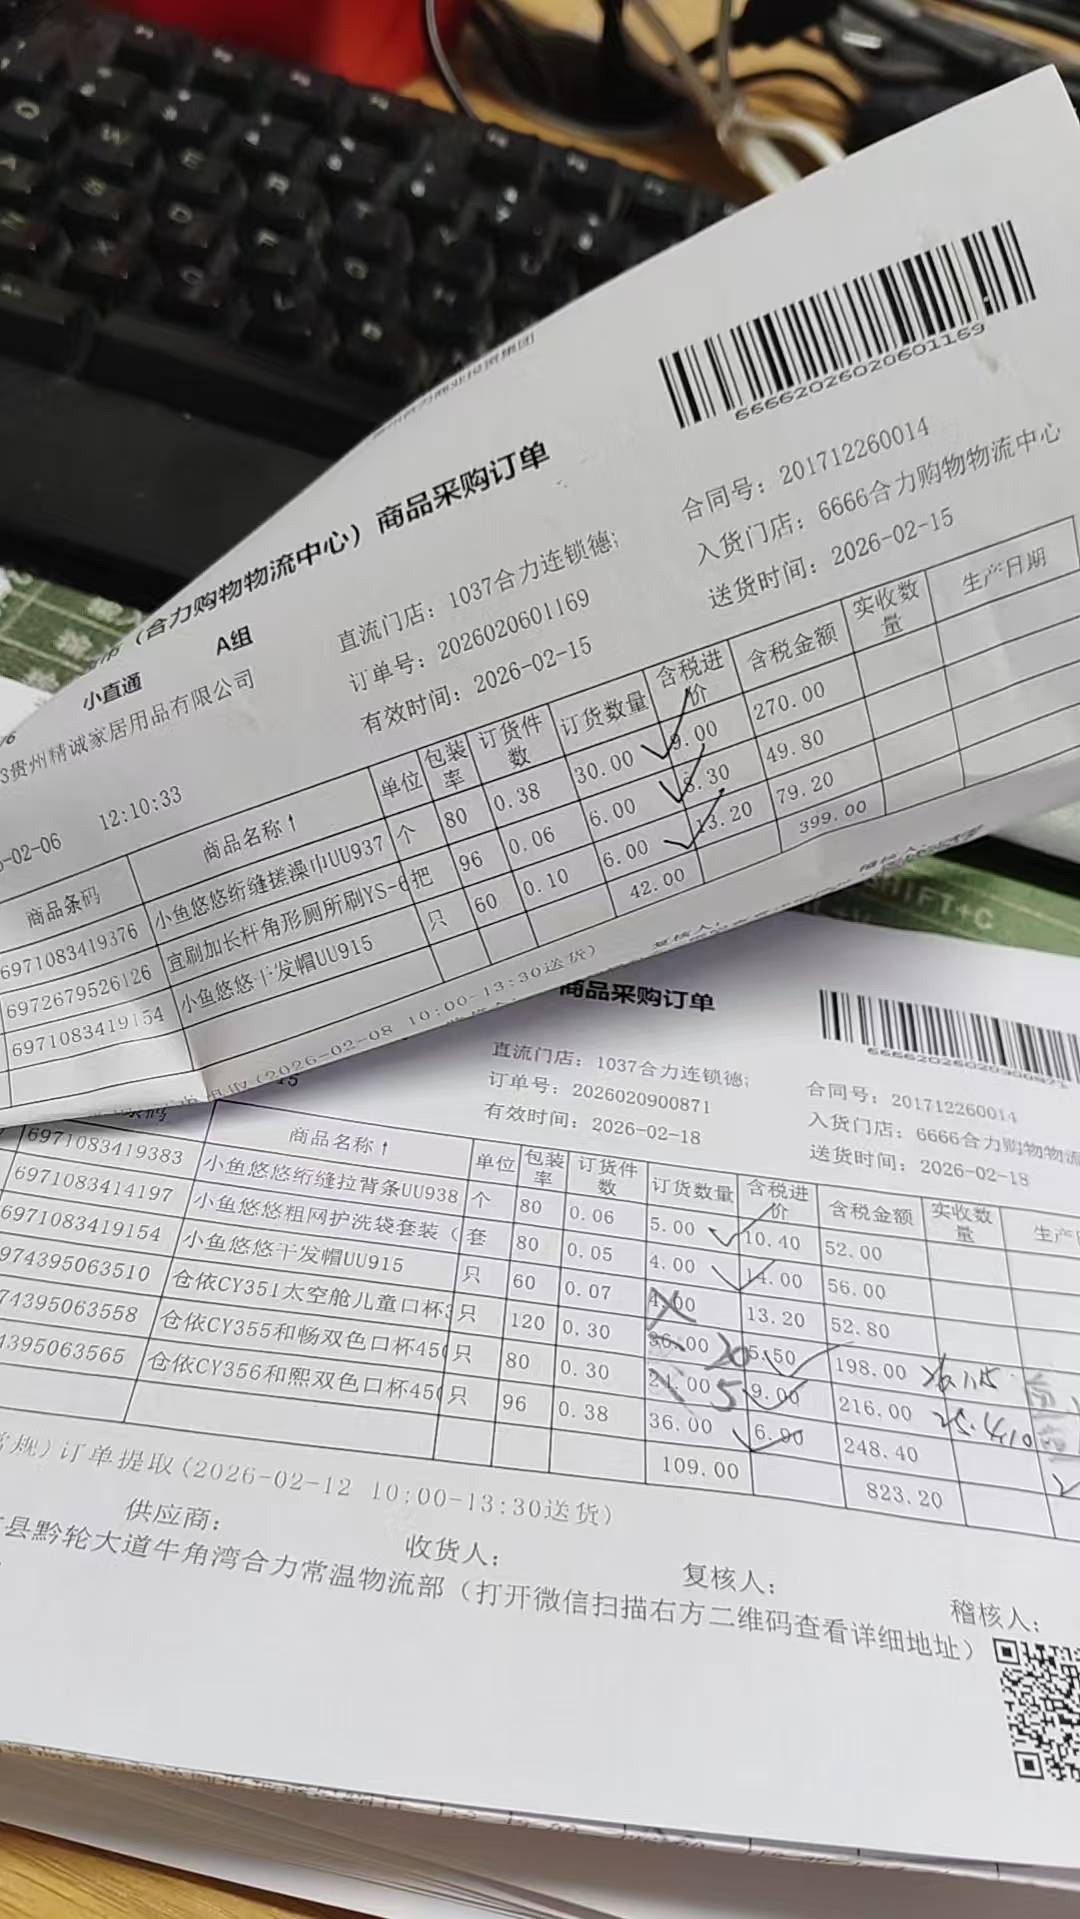 (合力购物物流中心) 商品采购订单
66662026020601169
小直通 A组
直流门店: 1037合力连锁德;
合同号: 201712260014
3贵州精诚家居用品有限公司
订单号: 2026020601169
入货门店: 6666合力购物物流中心
-02-06 12:10:33
有效时间: 2026-02-15
送货时间: 2026-02-15
商品条码 商品名称↑ 单位 包装率 订货件数 订货数量 含税进价 含税金额 实收数量 生产日期
6971083419376 小鱼悠悠绗缝搓澡巾UU937 个 80 0.38 30.00 9.00 270.00
6972679526126 宜刷加长杆角形厕所刷YS-6 把 96 0.06 6.00 8.30 49.80
6971083419154 小鱼悠悠干发帽UU915 只 60 0.10 6.00 13.20 79.20
42.00 399.00
(2026-02-08 10:00-13:30送货)
商品采购订单
直流门店: 1037合力连锁德;
合同号: 201712260014
订单号: 2026020900871
入货门店: 6666合力购物物流
有效时间: 2026-02-18
送货时间: 2026-02-18
商品名称↑ 单位 包装率 订货件数 订货数量 含税进价 含税金额 实收数量
6971083419383 小鱼悠悠绗缝拉背条UU938 个 80 0.06 5.00 10.40 52.00
6971083414197 小鱼悠悠粗网护洗袋套装( 套 80 0.05 4.00 14.00 56.00
6971083419154 小鱼悠悠干发帽UU915 只 60 0.07 4.00 13.20 52.80
974395063510 仓依CY351太空舱儿童口杯3 只 120 0.30 36.00 20 5.50 198.00
74395063558 仓依CY355和畅双色口杯450 只 80 0.30 24.00 5 9.00 216.00
4395063565 仓依CY356和熙双色口杯450 只 96 0.38 36.00 6.90 248.40
109.00 823.20
订单提取(2026-02-12 10:00-13:30送货)
供应商: 收货人: 复核人: 稽核人:
县黔轮大道牛角湾合力常温物流部 (打开微信扫描右方二维码查看详细地址)